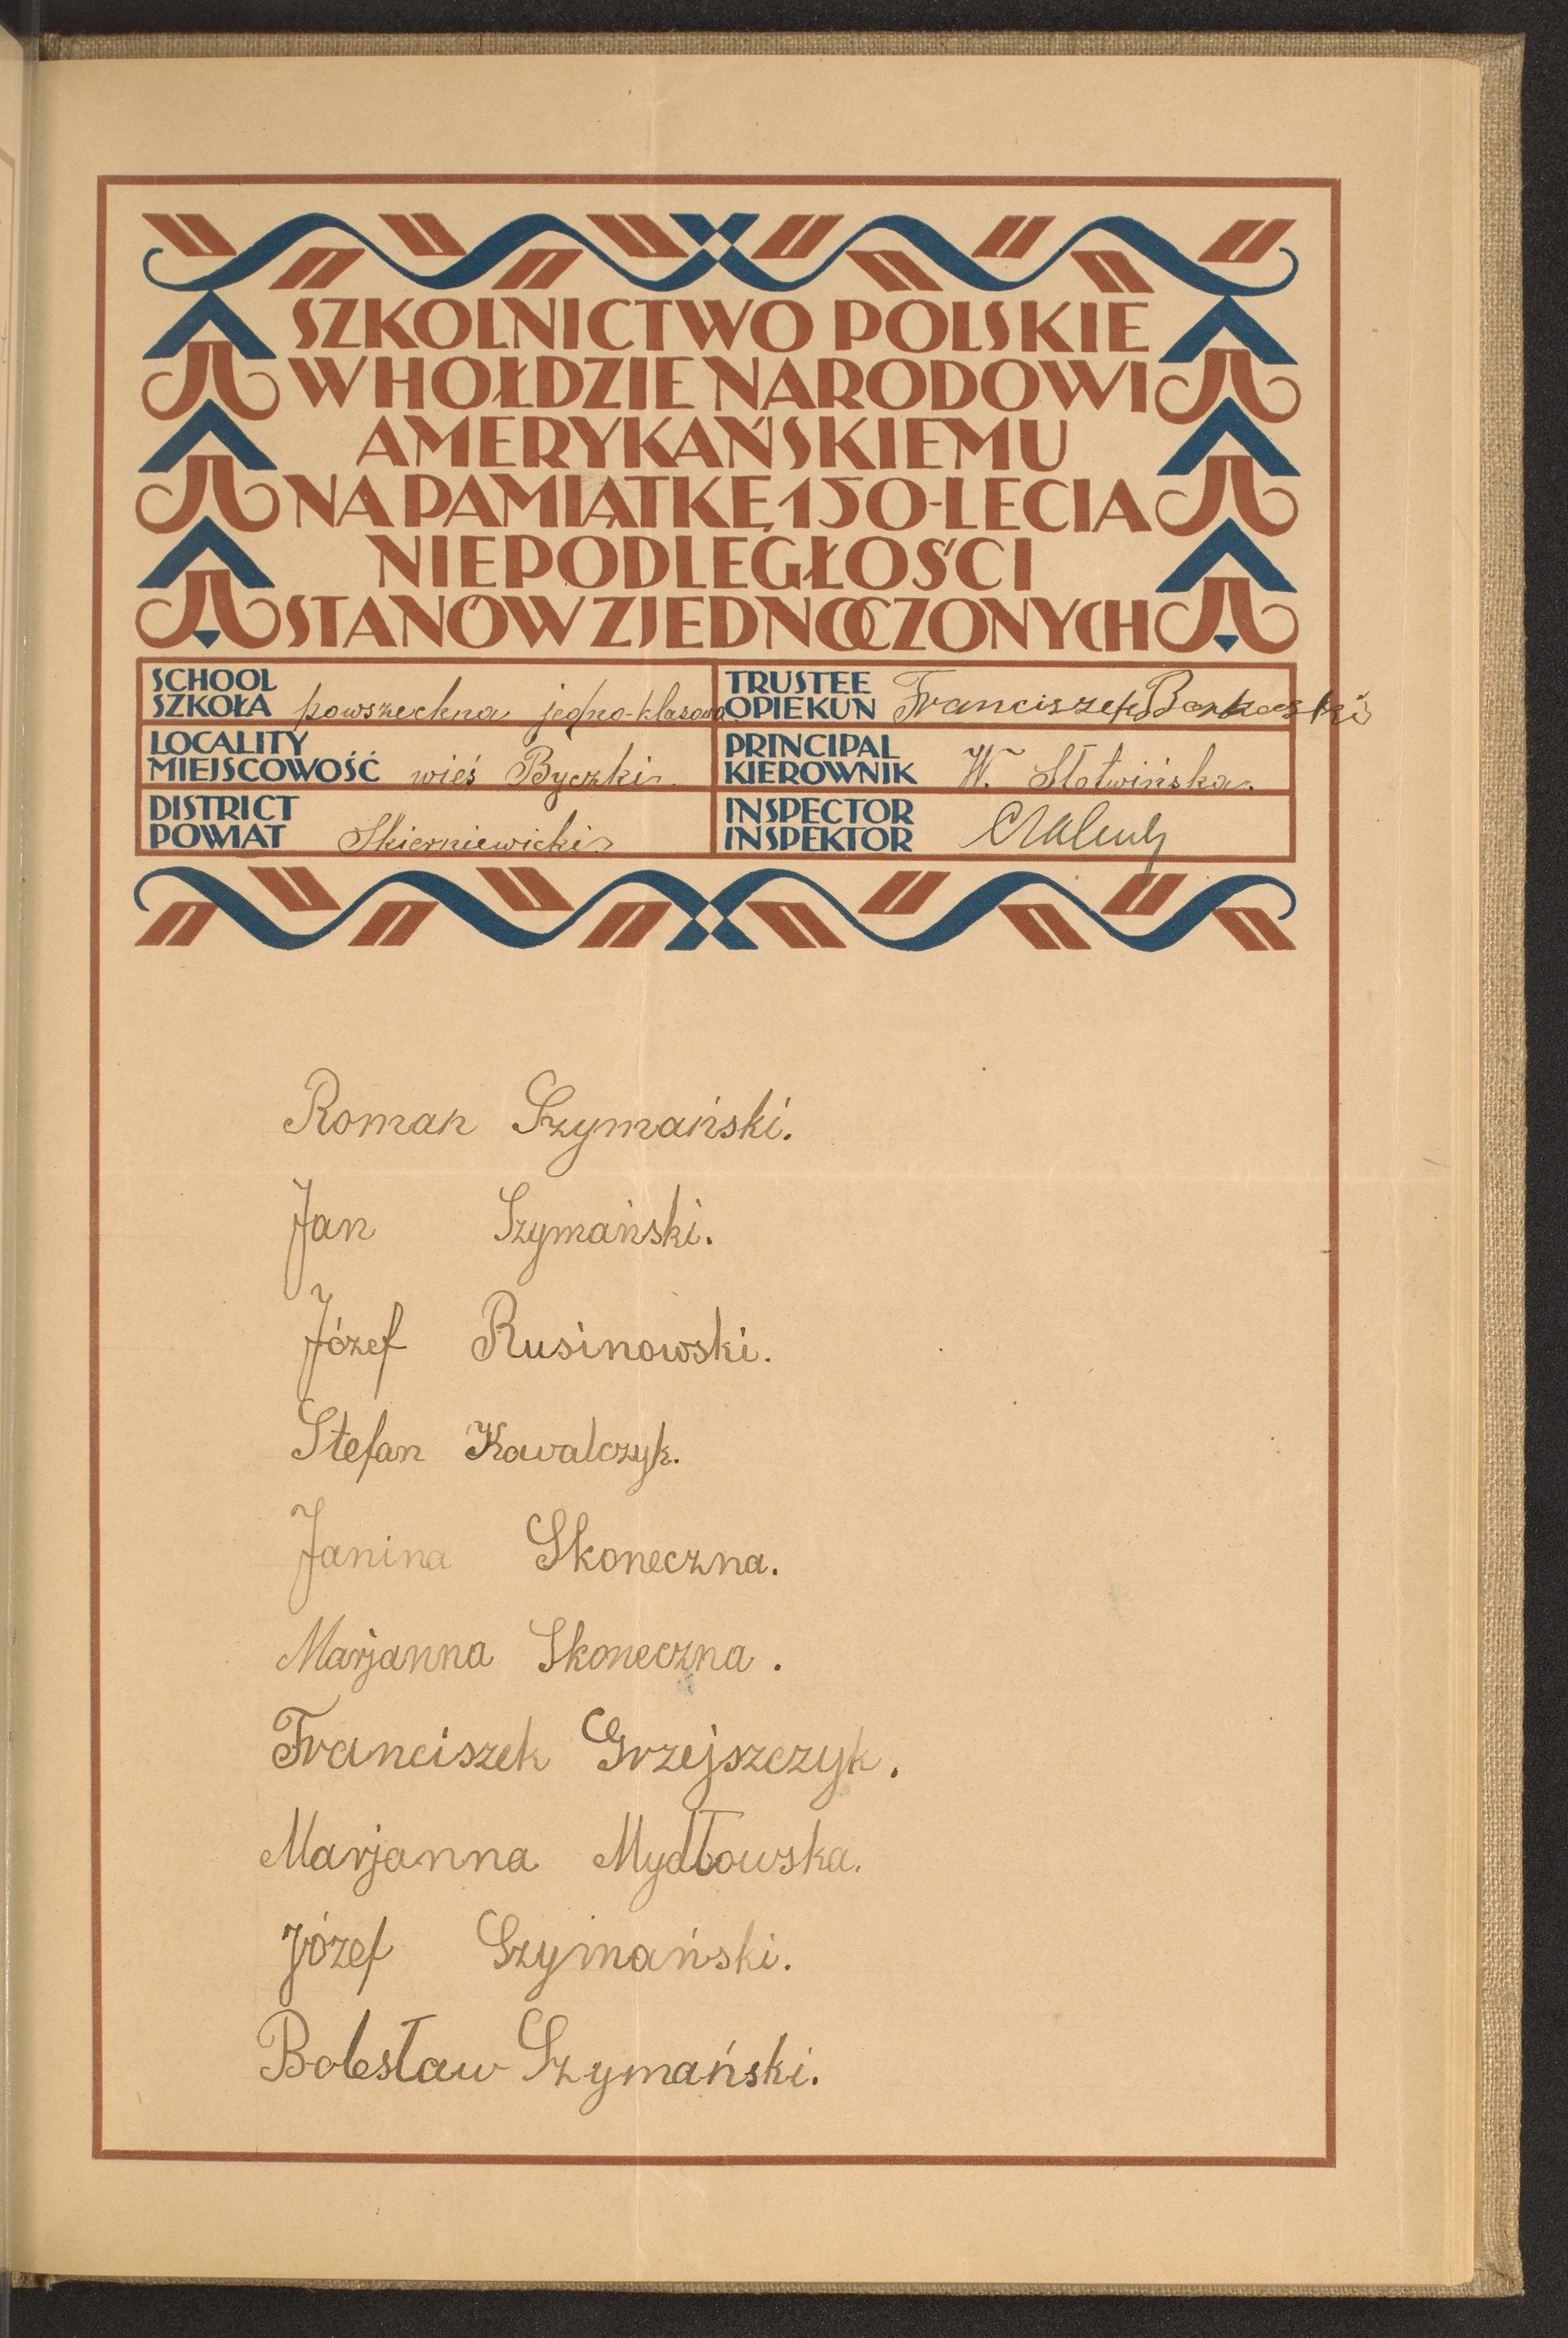 SZKOLNICTWO POLSKIE
W HOŁDZIE NARODOWI
AMERYKAŃSKIEMU
NA PAMIĄTKĘ 150-LECIA
NIEPODLEGŁOŚCI
STANÓW ZJEDNOCZONYCH
SCHOOL
SZKOŁA powszechna jedno-klasowa
TRUSTEE
OPIEKUN Franciszek
LOCALITY
MIEJSCOWOŚĆ wieś Byczki
PRINCIPAL
KIEROWNIK W. Słotwińska
DISTRICT
POWIAT Skierniewicki
INSPECTOR
INSPEKTOR
Roman Szymański.
Jan Szymański.
Józef Rusinowski.
Stefan Kowalczyk.
Janina Skoneczna.
Marjanna Skoneczna.
Franciszek Grzejszczyk.
Marjanna Mydłowska.
Józef Szymański.
Bolesław Szymański.